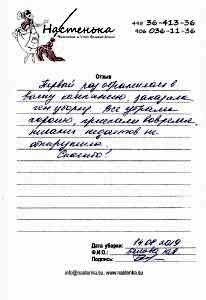 Настенька
499 36-413-36
906 036-11-36
Отзыв
Первый раз обратилась в
вашу компанию заказала
ген уборку. Все убрали
хорошо, приехали вовремя,
никаких недочетов не
обнаружила.
Спасибо!
Дата уборки: 14.08.2019
Ф.И.О.:
Подпись:
info@nastenka.su www.nastenka.su